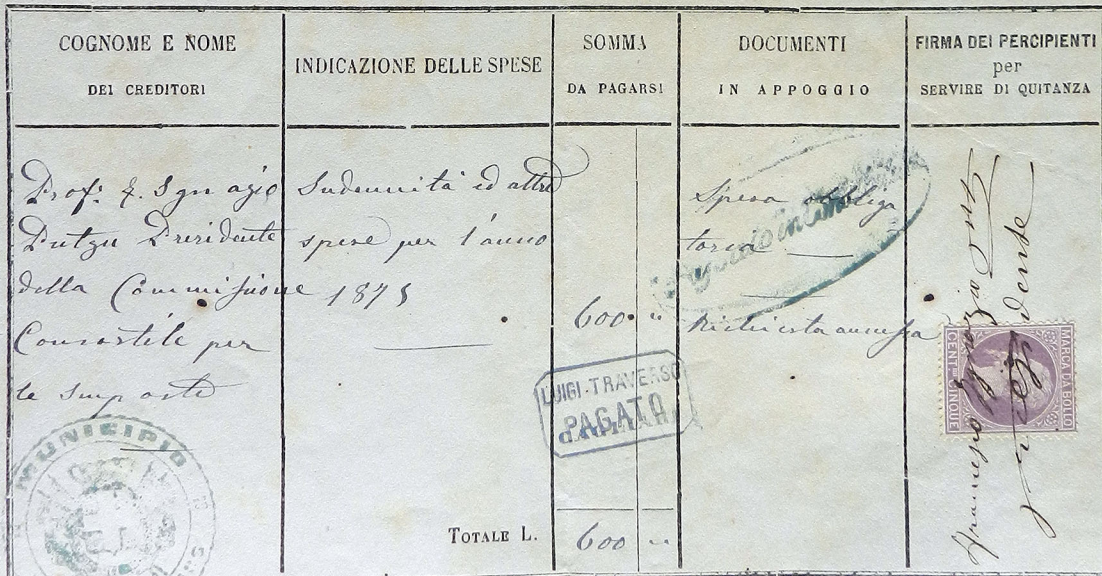 COGNOME E NOME
DEI CREDITORI
INDICAZIONE DELLE SPESE
SOMMA
DA PAGARSI
DOCUMENTI
IN APPOGGIO
FIRMA DEI PERCIPIENTI
per
SERVIRE DI QUITANZA
Prof. F. Ignazio
Putzu Presidente
della Commissione
Consortile per
le imposte
Indennità ed altre
spese per l'anno
1875
600 "
Spesa obbliga
toria
Richiesta annessa
LUIGI-TRAVERSO
PAGATO
MUNICIPIO
TOTALE L.
600 "
Francesco Ignazio
MARCA DA BOLLO
CENT. CINQUE